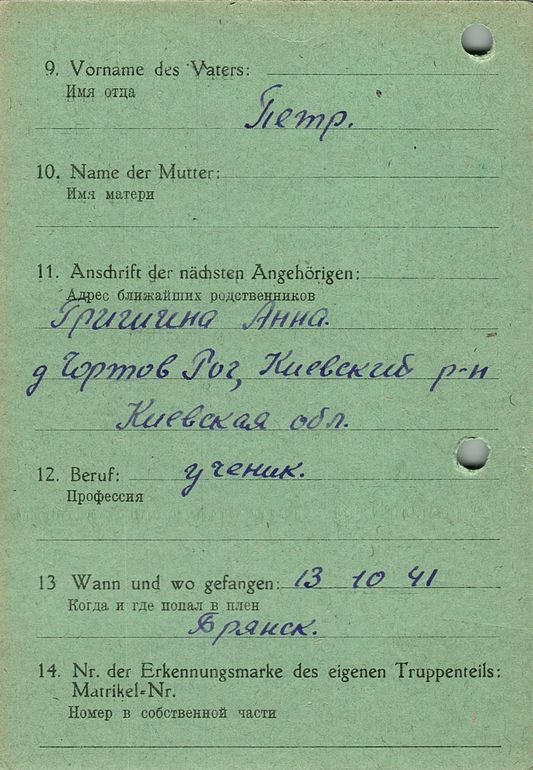 9. Vorname des Vaters:
Имя отца
Петр.
10. Name der Mutter:
Имя матери
11. Anschrift der nächsten Angehörigen:
Адрес ближайших родственников
Григина Анна.
д Чортов Рог, Киевский р-н
Киевская обл.
12. Beruf: ученик.
Профессия
13 Wann und wo gefangen: 13 10 41
Когда и где попал в плен
Брянск.
14. Nr. der Erkennungsmarke des eigenen Truppenteils:
Matrikel-Nr.
Номер в собственной части